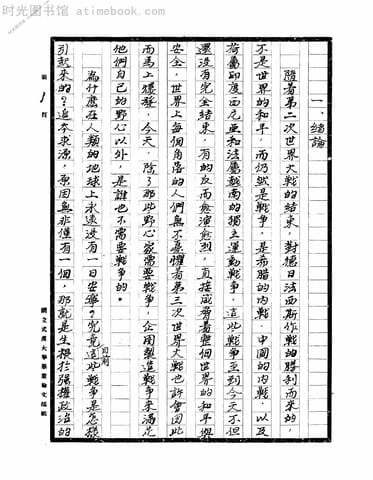 时光图书馆 - atimebook.com
一、緒論
隨着第二次世界大戰的結束，對德日法西斯作戰的勝利而來的，
不是世界的和平，而仍然是戰爭，是希腊的內戰，中國的內戰，以及
荷屬印度西尼亚和法屬越南的獨立運動戰爭，這些戰爭至到今天不但
還沒有完全結束，有的反而愈演愈烈，直接威脅着整個世界的和平與
安全，世界上每個角落的人们無不憂懼着第三次世界大戰也許會因此
而馬上爆發，今天，除了那些野心家需要戰爭，企圖製造戰爭來滿足
他們自己的野心以外，是誰也不需要戰爭的。
為什麼在人類的地球上永遠沒有一日安寧？究竟目前這些戰爭是怎樣
引起來的？追本求源，原因無非僅有一個，那就是生根於强權政治的
第1頁
國立武漢大學畢業論文稿紙